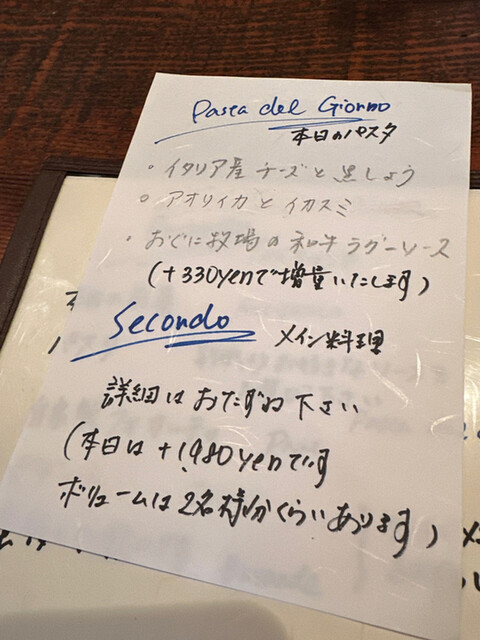 Pasta del Giorno
本日のパスタ
・イタリア産チーズと黒しょう
○ アオリイカとイカスミ
・おぐに牧場の和牛ラグーソース
(+330yenで増量いたします)
Secondo
メイン料理
詳細はおたずね下さい
(本日は+1,980yenです
ボリュームは2名様分くらいあります)